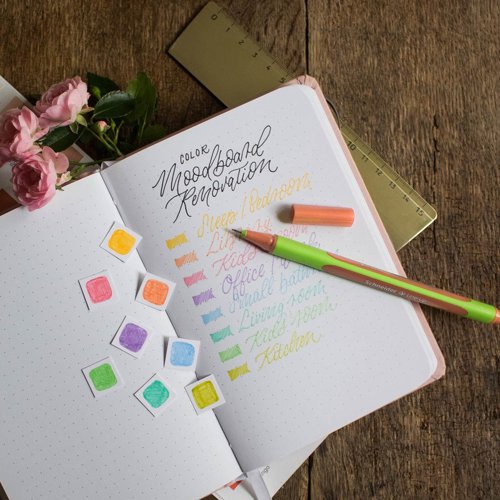 COLOR
Moodboard
Renovation
Sleep / bedroom
Kids room
Office /
Small bath
Living room
Kids room
Kitchen
Schneider
0 1 2 3 4 5
10 11 12 13 14 15